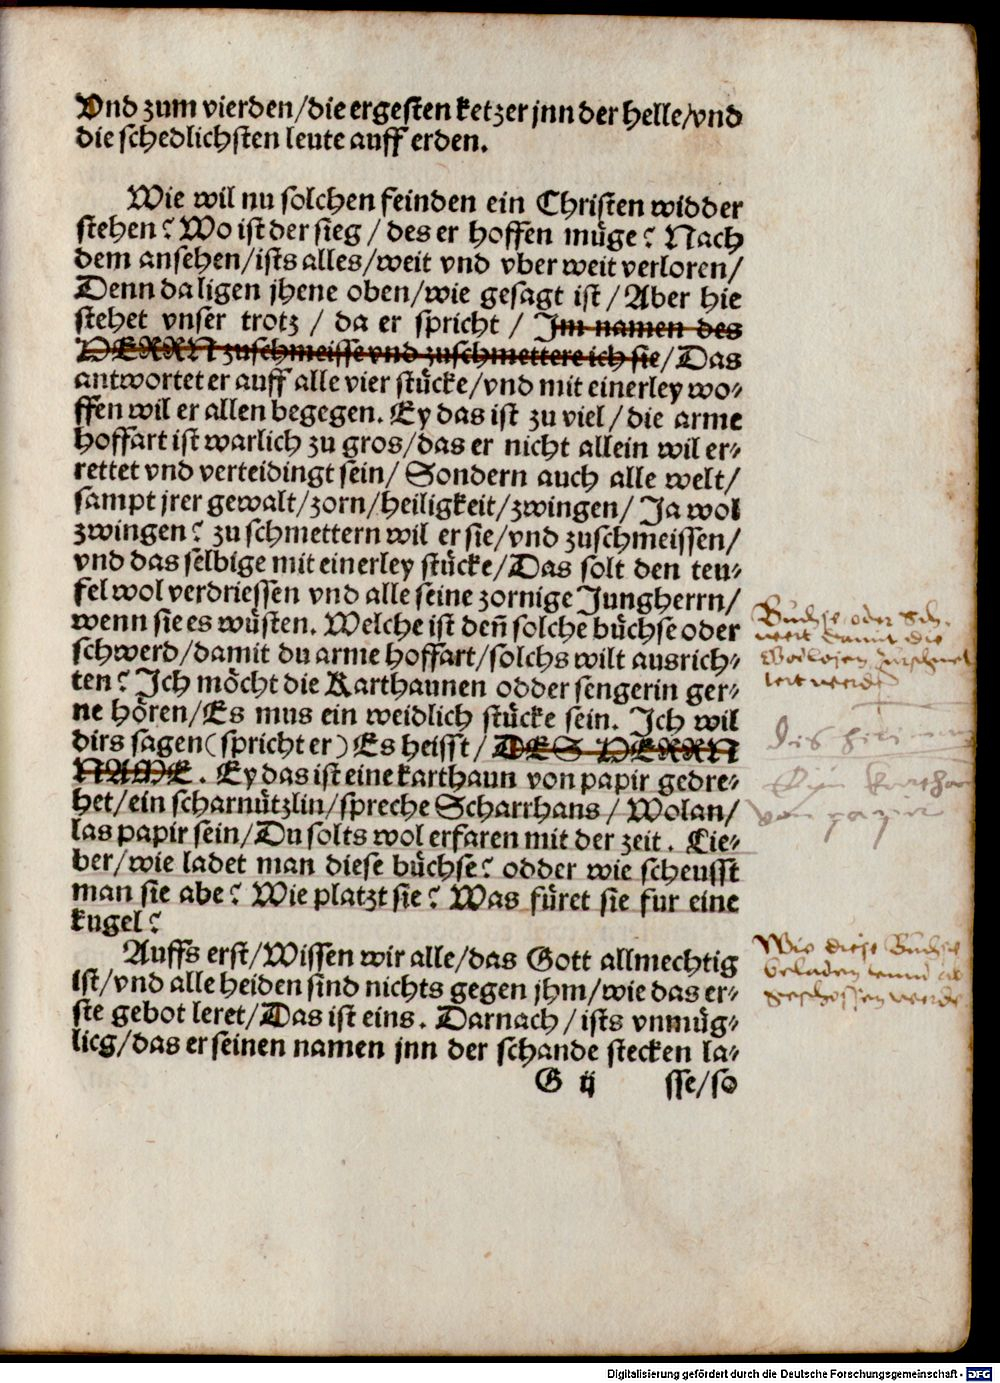 Vnd zum vierden/die ergesten ketzer jnn der helle/vnd
die schedlichsten leute auff erden.
Wie wil nu solchen feinden ein Christen widder
stehen? Wo ist der sieg / des er hoffen müge? Nach
dem ansehen/ists alles/weit vnd vber weit verloren/
Denn da ligen jhene oben/wie gesagt ist / Aber hie
stehet vnser trotz / da er spricht / Im namen des
HERRN zuschmeisse vnd zuschmettere ich sie/Das
antwortet er auff alle vier stücke/vnd mit einerley wo⸗
ffen wil er allen begegen. Ey das ist zu viel / die arme
hoffart ist warlich zu gros/das er nicht allein wil er⸗
rettet vnd verteidingt sein/ Sondern auch alle welt/
sampt jrer gewalt/zorn/heiligkeit/zwingen/ Ja wol
zwingen? zu schmettern wil er sie/vnd zuschmeissen/
vnd das selbige mit einerley stücke/Das solt den teu⸗
fel wol verdriessen vnd alle seine zornige Jungherrn/
wenn sie es wüsten. Welche ist deñ solche büchse oder
schwerd/damit du arme hoffart/solchs wilt ausrich⸗
ten? Ich möcht die Karthaunen odder sengerin ger⸗
ne hören/Es mus ein weidlich stücke sein. Ich wil
dirs sagen(spricht er) Es heisst/ DES HERRN
NAME. Ey das ist eine karthaun von papir gedre⸗
het/ein scharnützlin/spreche Scharrhans / Wolan/
las papir sein/Du solts wol erfaren mit der zeit. Lie⸗
ber/wie ladet man diese büchse? odder wie scheusst
man sie abe? Wie platzt sie? Was füret sie fur eine
kugel?
Auffs erst/Wissen wir alle/das Gott allmechtig
ist/vnd alle heiden sind nichts gegen jhm/wie das er⸗
ste gebot leret/Das ist eins. Darnach / ists vnmüg⸗
licg/das er seinen namen jnn der schande stecken la⸗
G ij sse/so
Buchse oder Sch⸗
wert damit die
Gotlosen
werden
von papir
Wie diese Buchse
beladen vnnd ab
geschossen werde
Digitalisierung gefördert durch die Deutsche Forschungsgemeinschaft - DFG